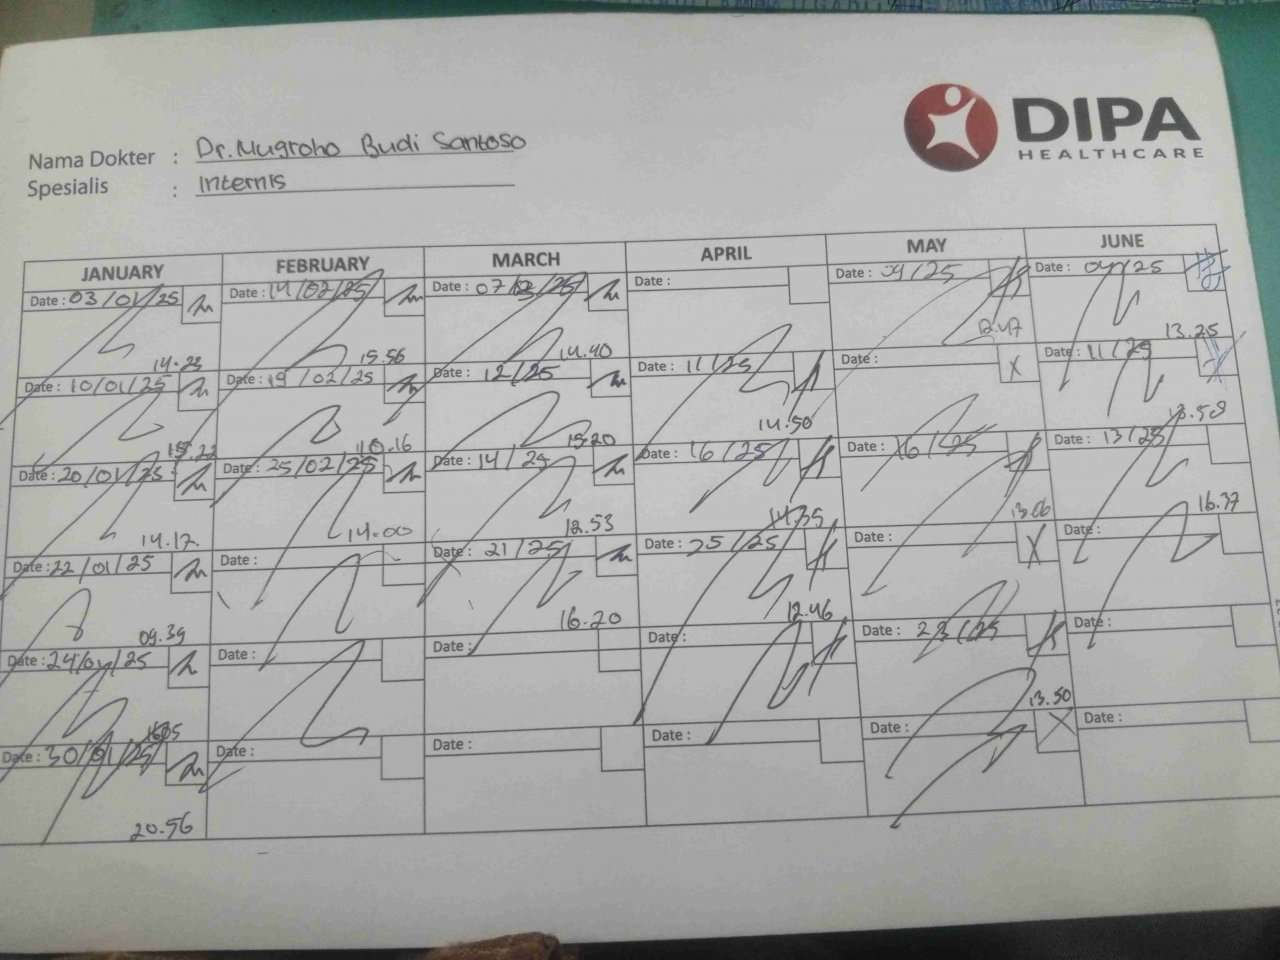 DIPA
HEALTHCARE
Nama Dokter : Dr. Nugroho Budi Santoso
Spesialis : Internis
JANUARY FEBRUARY MARCH APRIL MAY JUNE
Date : 03/01/25 Date : 14/02/25 Date : 07/03/25 Date : Date : 09/25 Date : 04/25
14.23 15.56 14.40 12.47 13.25
Date : 10/01/25 Date : 19/02/25 Date : 12/25 Date : 11/25 Date : Date : 11/25
15.22 10.16 15.20 14.50 13.58
Date : 20/01/25 Date : 25/02/25 Date : 14/25 Date : 16/25 Date : 16/25 Date : 13/25
14.17 14.00 12.53 14.35 13.06 16.37
Date : 22/01/25 Date : Date : 21/25 Date : 25/25 Date : Date :
09.39 16.20 12.46
Date : 24/01/25 Date : Date : Date : Date : 23/25 Date :
13.50
Date : 30/01/25 Date : Date : Date : Date : Date :
20.56